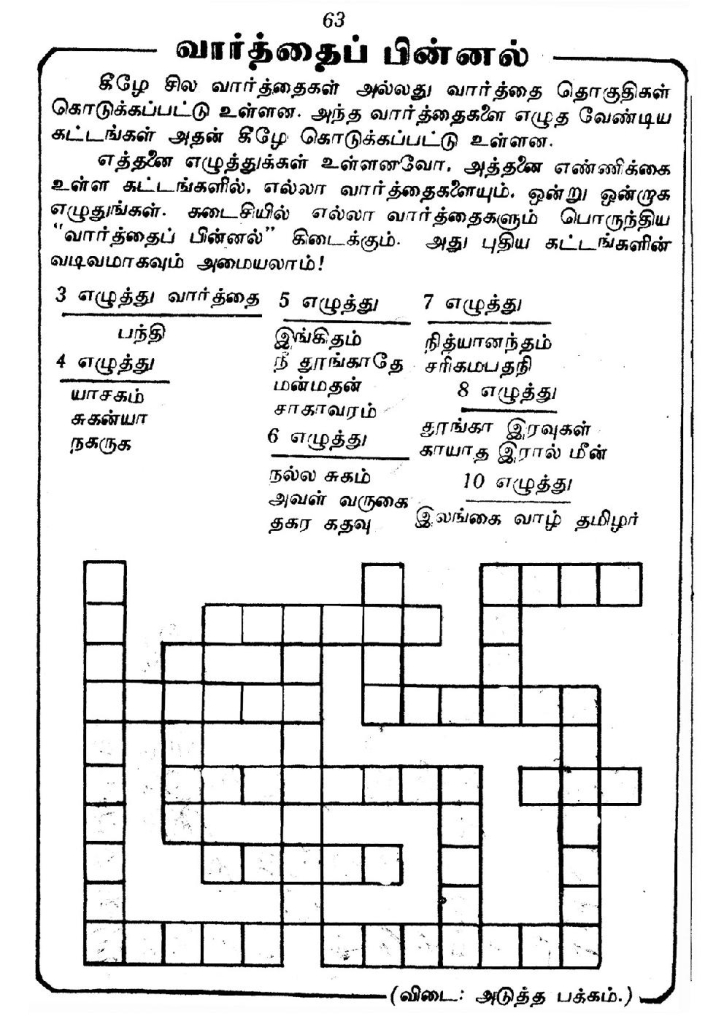 63
வார்த்தைப் பின்னல்
கீழே சில வார்த்தைகள் அல்லது வார்த்தை தொகுதிகள்
கொடுக்கப்பட்டு உள்ளன. அந்த வார்த்தைகளை எழுத வேண்டிய
கட்டங்கள் அதன் கீழே கொடுக்கப்பட்டு உள்ளன.
எத்தனை எழுத்துக்கள் உள்ளனவோ, அத்தனை எண்ணிக்கை
உள்ள கட்டங்களில், எல்லா வார்த்தைகளையும், ஒன்று ஒன்றாக
எழுதுங்கள். கடைசியில் எல்லா வார்த்தைகளும் பொருந்திய
"வார்த்தைப் பின்னல்" கிடைக்கும். அது புதிய கட்டங்களின்
வடிவமாகவும் அமையலாம்!
3 எழுத்து வார்த்தை
பந்தி
4 எழுத்து
யாசகம்
சுகன்யா
நகருக
5 எழுத்து
இங்கிதம்
நீ தூங்காதே
மன்மதன்
சாகாவரம்
6 எழுத்து
நல்ல சுகம்
அவள் வருகை
தகர கதவு
7 எழுத்து
நித்யானந்தம்
சரிகமபதநி
8 எழுத்து
தூங்கா இரவுகள்
காயாத இரால் மீன்
10 எழுத்து
இலங்கை வாழ் தமிழர்
(விடை: அடுத்த பக்கம்.)